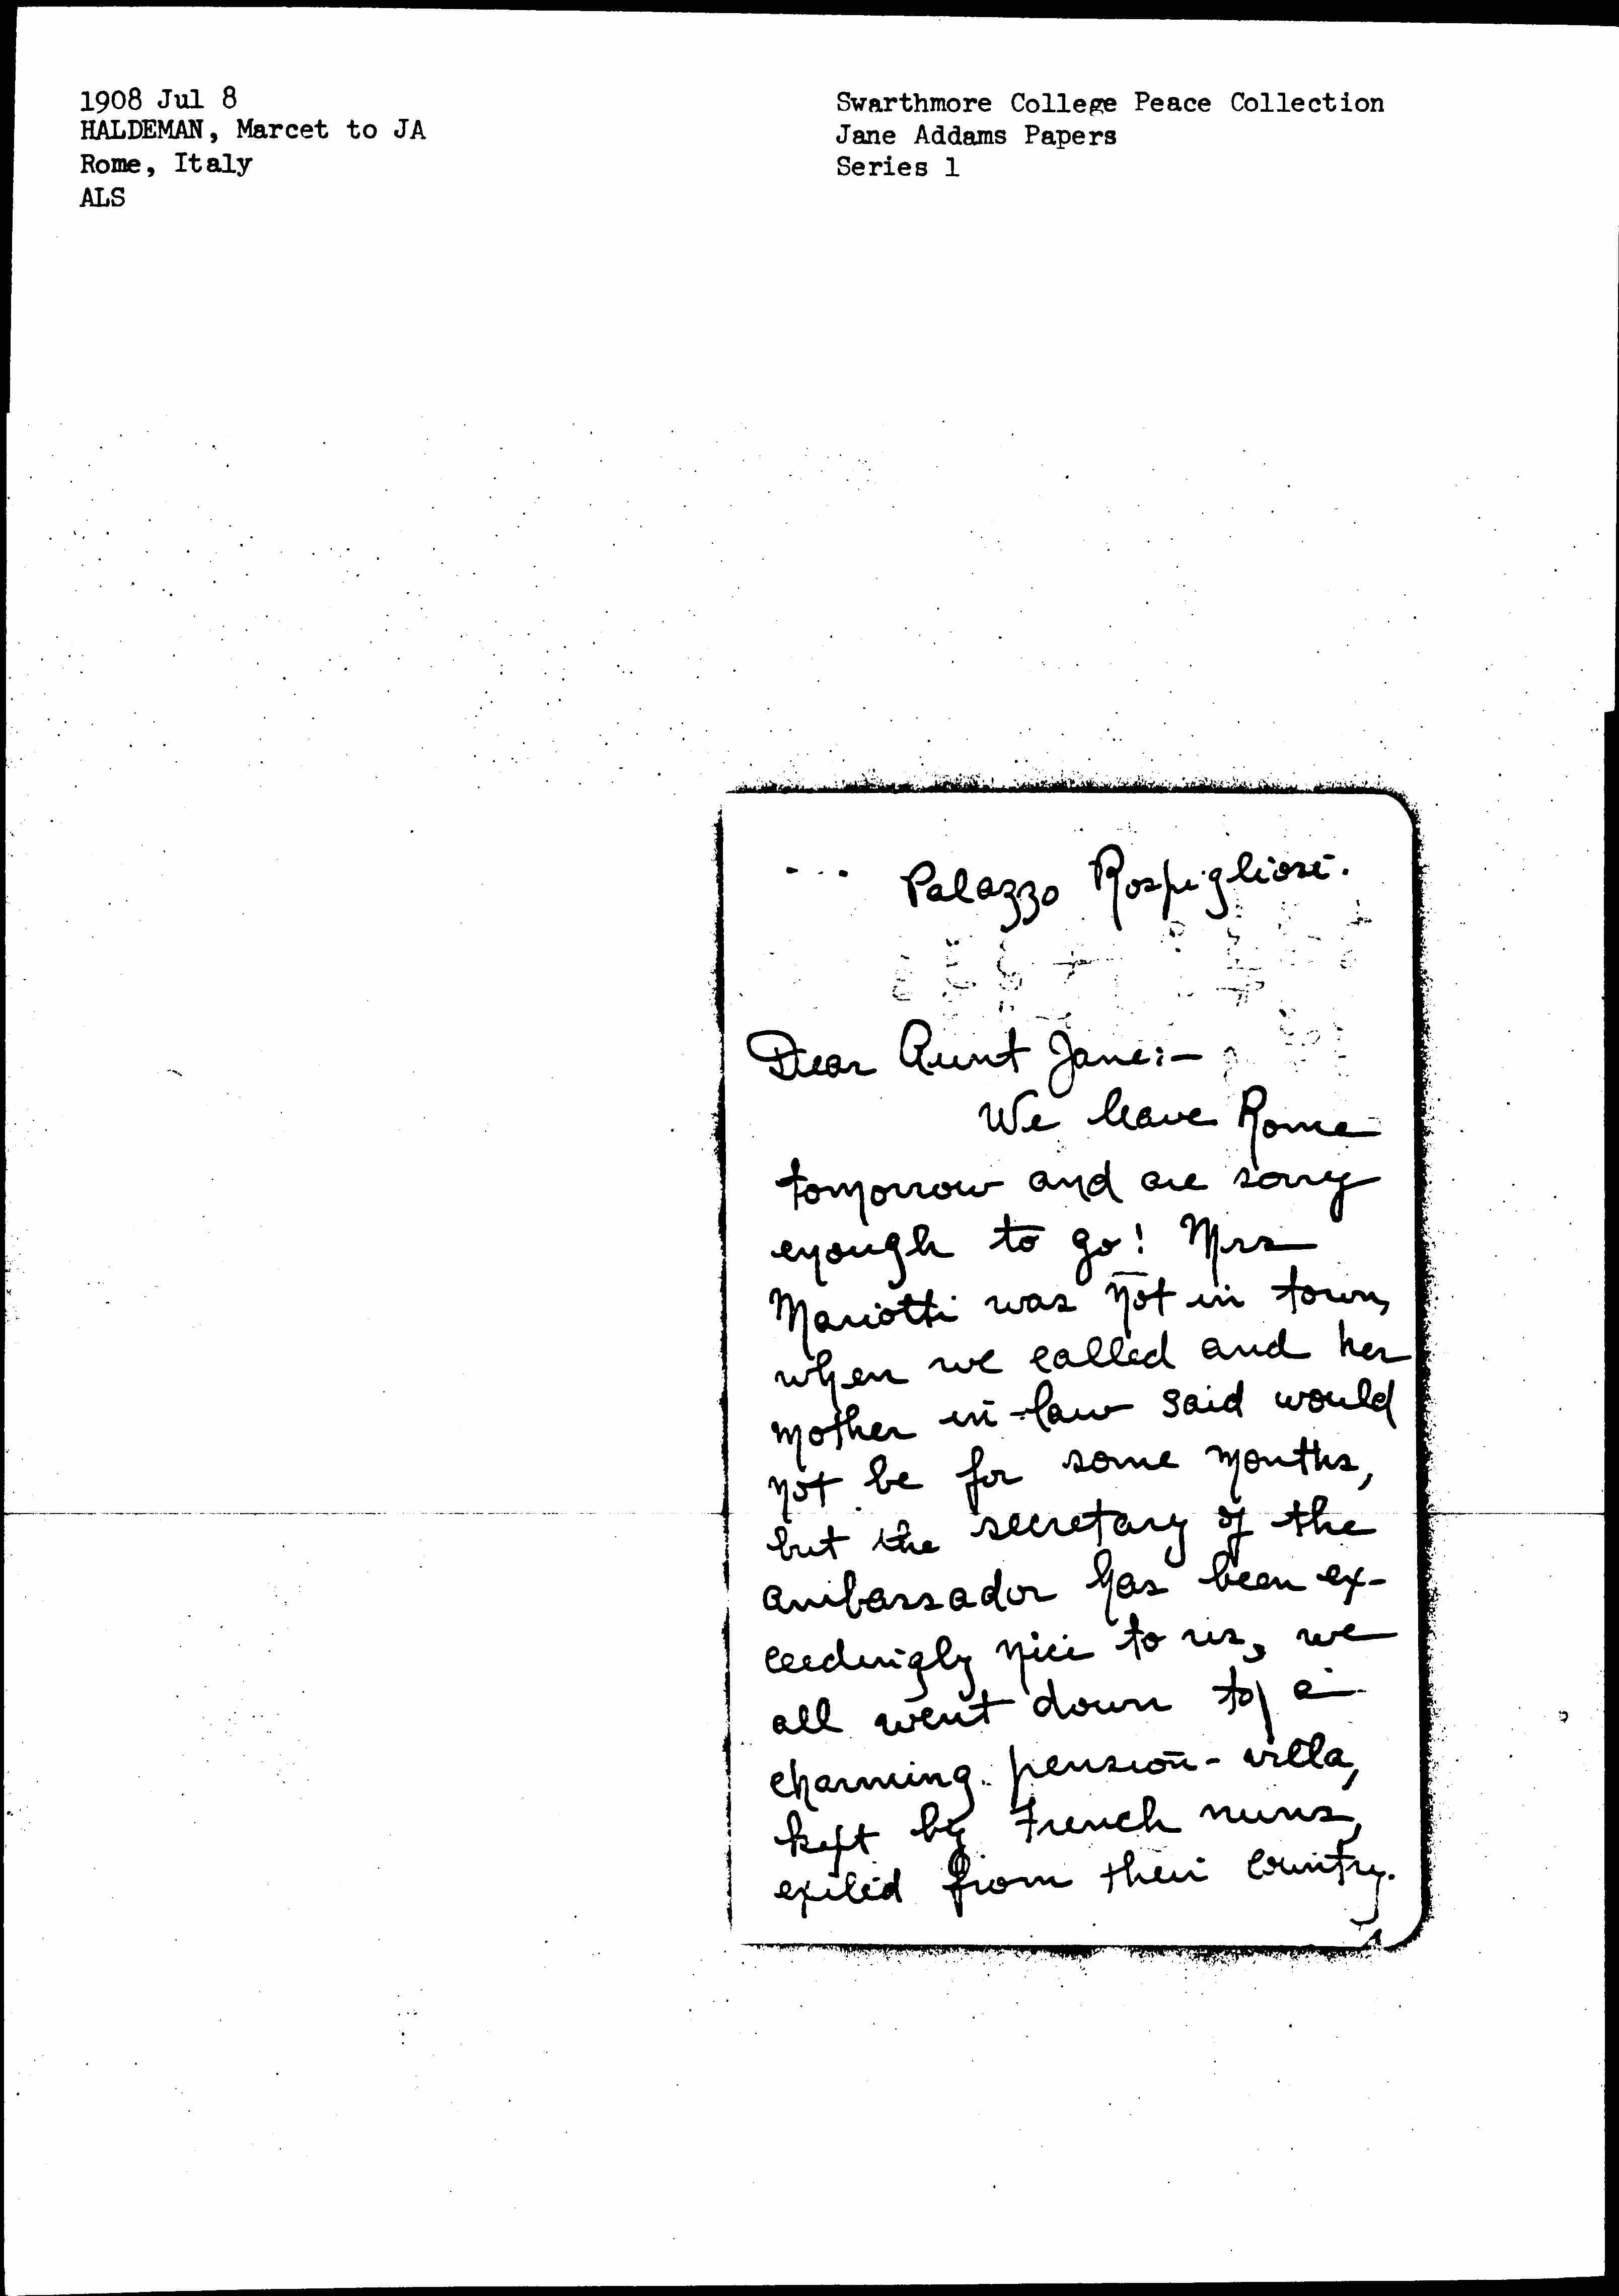 1908 Jul 8
HALDEMAN, Marcet to JA
Rome, Italy
ALS
Swarthmore College Peace Collection
Jane Addams Papers
Series 1
Palazzo Rospigliosi.
Dear Aunt Jane:—
We leave Rome
tomorrow and are sorry
enough to go! Mrs
Mariotti was not in town,
when we called and her
mother in-law said would
not be for some months,
but the secretary of the
ambassador has been ex-
ceedingly nice to us, we
all went down to a
charming pension-villa,
kept by French nuns,
exiled from their country.